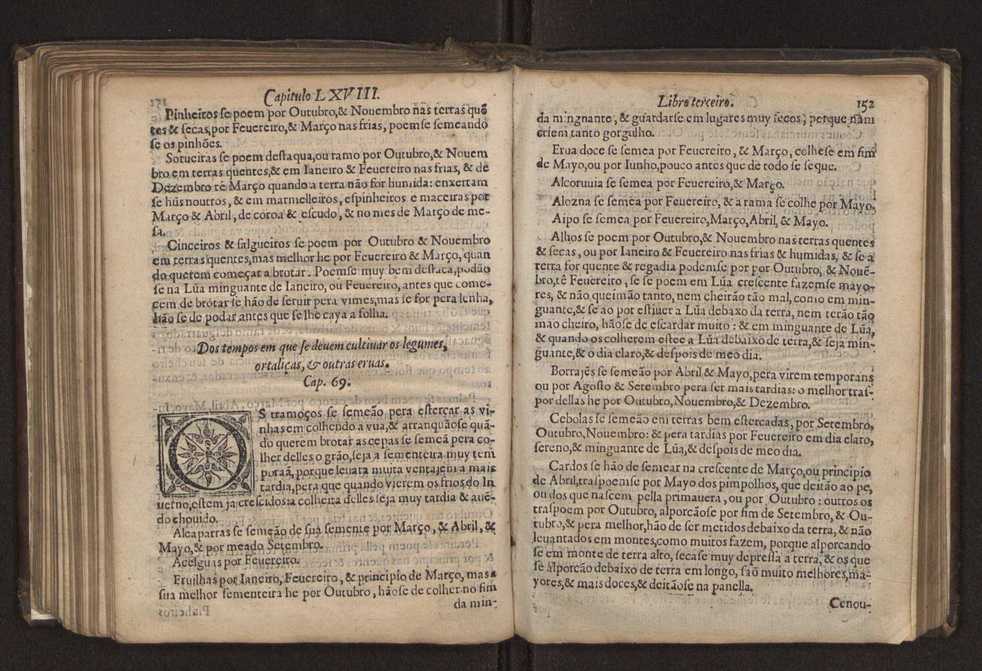 Capitulo LXVIII.
Pinheiros se poem por Outubro,& Nouembro nas terras quẽ
tes & secas,por Feuereiro,& Março nas frias, poemse semeando
se os pinhões.
Sotueiras se poem destaca,ou ramo por Outubro,& Nouem
bro em terras quentes,& em Ianeiro & Feuereiro nas frias, & de
Dezembro tè Março quando a terra não for humida: enxertam
se hũs noutros, & em marmelleiros, espinheiros e maceiras por
Março & Abril, de coroa & escudo, & no mes de Março de me-
sa.
Cinceiros & salgueiros se poem por Outubro & Nouembro
em terras quentes,mas melhor he por Feuereiro & Março, quan
do querem começar a brotar. Poemse muy bem destaca,podão
se na Lũa minguante de Ianeiro, ou Feuereiro, antes que come-
cem de brotar se hão de seruir pera vimes,mas se for pera lenha,
hão se de podar antes que se lhe caya a folha.
Dos tempos em que se deuem cultivar os legumes,
ortaliças, & outras eruas.
Cap. 69.
OS tramoços se semeão pera estercar as vi-
nhas em colhendo a vua,& arranquãose quã-
do querem brotar as cepas se semeã pera co-
lher delles o grão,seja a sementeira muy tem
poraã, porque leuara muita ventajem a mais
tardia,pera que quando vierem os frios do In
uerno,estem ja crescidos:a colheita delles seja muy tardia & auẽ-
do chouido.
Alcaparras se semeão de sua semente por Março, & Abril, &
Mayo,& por meado Setembro.
Acelguas por Feuereiro.
Eruilhas por Ianeiro, Feuereiro, & principio de Março, mas a
sua melhor sementeira he por Outubro, hãose de colher no fim
da min-
Libro terceiro. 152
da mingnante, & guardarse em lugares muy secos, perque nam
criem tanto gorgulho.
Erua doce se semea por Feuereiro, & Março, colhese em fim
de Mayo,ou por Iunho,pouco antes que de todo se seque.
Alcoruuia se semea por Feuereiro,& Março.
Alozna se semea por Feuereiro, & a rama se colhe por Mayo.
Aipo se semea por Feuereiro,Março,Abril, & Mayo.
Alhos se poem por Outubro,& Nouembro nas terras quentes
& secas, ou por Ianeiro & Feuereiro nas frias & humidas, & se a
terra for quente & regadia podemse por por Outubro, & Nouẽ-
bro,tè Feuereiro, se se poem em Lũa crescente fazemse mayo-
res, & não queimão tanto, nem cheirão tão mal,como em min-
guante,& se ao por estiuer a Lũa debaxo da terra, nem terão tão
mao cheiro, hãose de escardar muito : & em minguante de Lũa,
& quando os colherem estee a Lũa debaixo de terra,& seja min-
guante,& o dia claro,& despois de meo dia.
Borrajẽs se semeão por Abril & Mayo,pera virem temporans
ou por Agosto & Setembro pera ser mais tardias: o melhor tras-
por dellas he por Outubro,Nouembro,& Dezembro.
Cebolas se semeão em terras bem estercadas, por Setembro,
Outubro,Nouembro: & pera tardias por Feuereiro em dia claro,
sereno,& minguante de Lũa,& despois de meo dia.
Cardos se hão de semear na crescente de Março,ou principio
de Abril,traspoemse por Mayo dos pimpolhos, que deitão ao pe,
ou dos que nascem pella primauera, ou por Outubro : outros os
traspoem por Outubro, alporcãose por fim de Setembro, & Ou-
tubro,& pera melhor,hão de ser metidos debaixo da terra, & não
leuantados em montes,como muitos fazem, porque alporcando
se em monte de terra alto, secase muy depressa a terra,& os que
se alporcão debaixo de terra em longo, são muito melhores,ma-
yores,& mais doces,& deitãose na panella.
Cenou-